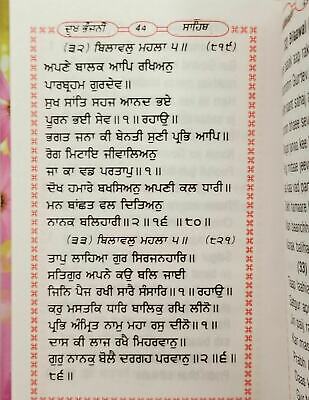 ਦੁਖ ਭੰਜਨੀ 44 ਸਾਹਿਬ
(੩੨) ਬਿਲਾਵਲੁ ਮਹਲਾ ੫॥ (੮੧੯)
ਅਪਣੇ ਬਾਲਕ ਆਪਿ ਰਖਿਅਨੁ
ਪਾਰਬ੍ਰਹਮ ਗੁਰਦੇਵ॥
ਸੁਖ ਸਾਂਤਿ ਸਹਜ ਆਨਦ ਭਏ
ਪੂਰਨ ਭਈ ਸੇਵ॥੧॥ਰਹਾਉ॥
ਭਗਤ ਜਨਾ ਕੀ ਬੇਨਤੀ ਸੁਣੀ ਪ੍ਰਭਿ ਆਪਿ॥
ਰੋਗ ਮਿਟਾਇ ਜੀਵਾਲਿਅਨੁ
ਜਾ ਕਾ ਵਡ ਪਰਤਾਪੁ॥੧॥
ਦੋਖ ਹਮਾਰੇ ਬਖਸਿਅਨੁ ਅਪਣੀ ਕਲ ਧਾਰੀ॥
ਮਨ ਬਾਂਛਤ ਫਲ ਦਿਤਿਅਨੁ
ਨਾਨਕ ਬਲਿਹਾਰੀ॥੨॥੧੬॥੮੦॥
(੩੩) ਬਿਲਾਵਲੁ ਮਹਲਾ ੫॥ (੮੨੧)
ਤਾਪੁ ਲਾਹਿਆ ਗੁਰ ਸਿਰਜਨਹਾਰਿ॥
ਸਤਿਗੁਰ ਅਪਨੇ ਕਉ ਬਲਿ ਜਾਈ
ਜਿਨਿ ਪੈਜ ਰਖੀ ਸਾਰੈ ਸੰਸਾਰਿ॥੧॥ਰਹਾਉ॥
ਕਰੁ ਮਸਤਕਿ ਧਾਰਿ ਬਾਲਿਕੁ ਰਖਿ ਲੀਨੋ॥
ਪ੍ਰਭਿ ਅੰਮ੍ਰਿਤ ਨਾਮੁ ਮਹਾ ਰਸੁ ਦੀਨੋ॥੧॥
ਦਾਸ ਕੀ ਲਾਜ ਰਖੈ ਮਿਹਰਵਾਨੁ॥
ਗੁਰੁ ਨਾਨਕੁ ਬੋਲੈ ਦਰਗਹ ਪਰਵਾਨੁ॥੨॥੬॥
੮੬॥